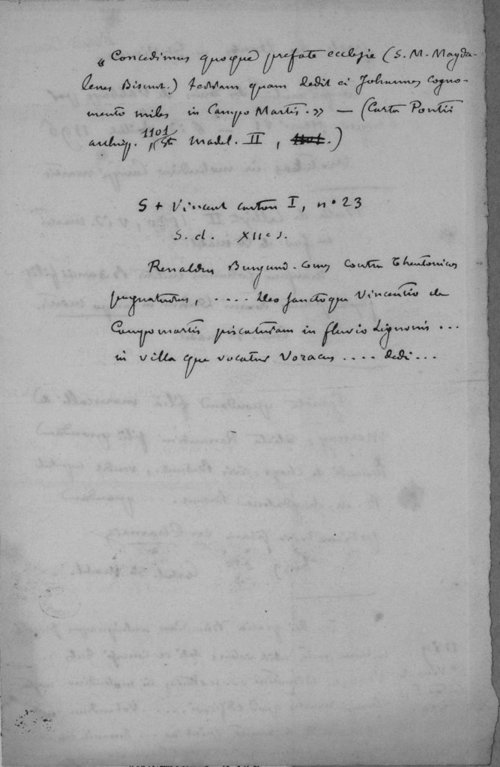 « Concedimus quoque prefate ecclesie (S. M. Magda-
lenes Bisunt.) terram quam dedit ei Johannes cogno-
mento miles in Campo Martis. » — (Carta Pontii
archiep. 1101, St Madel. II, 1101.)
St Vincent carton I, n° 23
S. d. XIIe s.
Renaldus Burgund. comes contra theutonicos
pugnaturus, ..... Deo sanctoque Vincentio de
Campo martis piscaturam in fluvio Lignonis ...
in villa que vocatur Voracus .... dedi ...